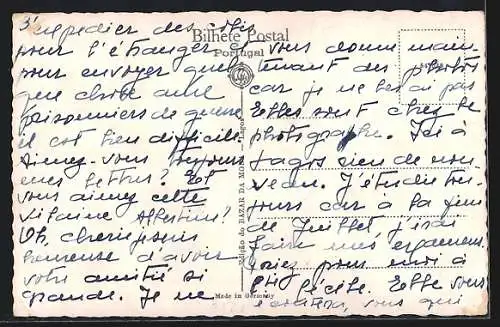 3/
Bilhete Postal
Portugal
expedier des colis
pour l'étranger,
pour envoyer quel
que chose aux
prisonniers de guerre
il est bien difficile.
Aimez-vous toujours
mes lettres? Et
vous aimez cette
vilaine Albertine?
Oh, cherie, je suis
heureuse d'avoir
votre amitié si
grande. Je ne
vous donne main-
tenant des photos
car je ne les ai pas
Elles sont chez le
photographe. Ici à
Lagos rien de nou-
veau. J'étudie tou-
jours car à la fin
de Juillet j'irai
faire mes examens.
priez pour moi à
Lucile. Elle vous
vous qui
Edição do BAZAR DA MODA - Lagos
Made in Germany